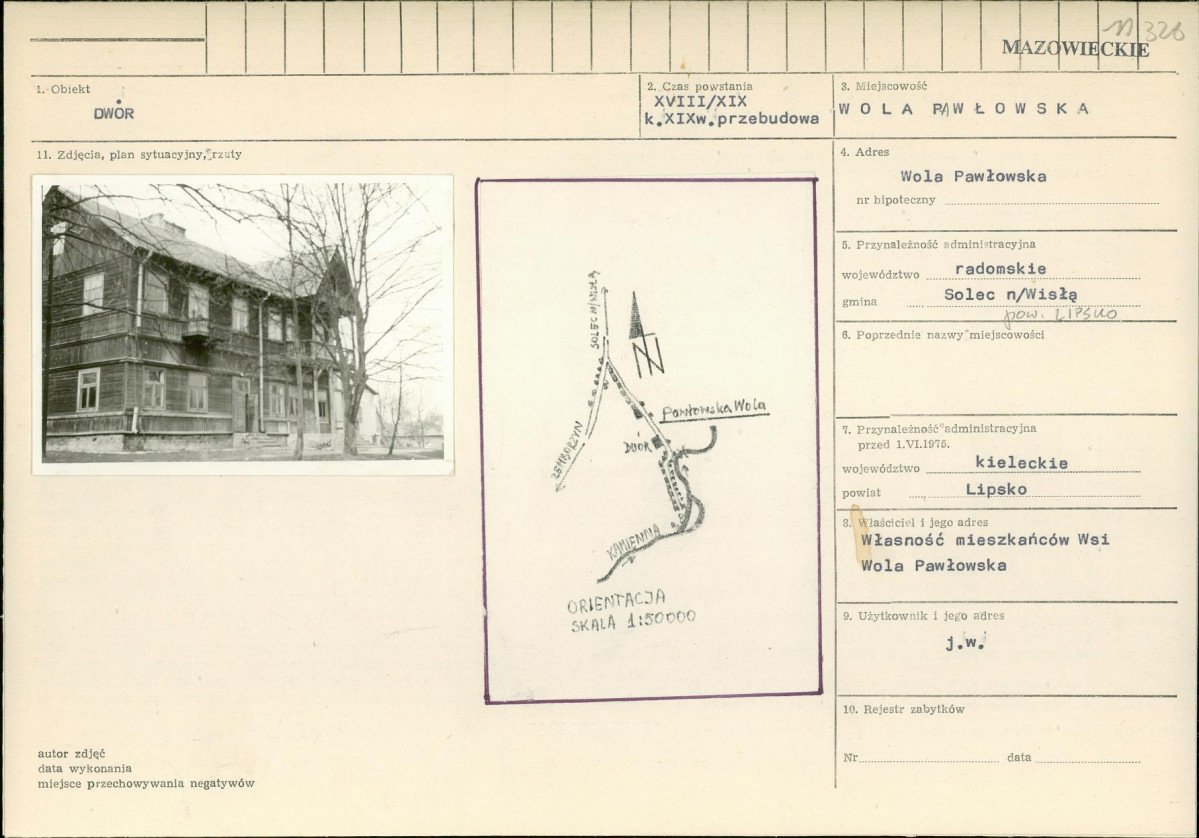 n 326
MAZOWIECKIE
1. Obiekt
DWÓR
2. Czas powstania
XVIII/XIX
k.XIXw.przebudowa
3. Miejscowość
WOLA PAWŁOWSKA
11. Zdjęcia, plan sytuacyjny, rzuty
4. Adres
Wola Pawłowska
nr hipoteczny
5. Przynależność administracyjna
województwo radomskie
gmina Solec n/Wisłą
pow. LIPSKO
6. Poprzednie nazwy miejscowości
7. Przynależność administracyjna
przed 1.VI.1975.
województwo kieleckie
powiat Lipsko
8. Właściciel i jego adres
Własność mieszkańców Wsi
Wola Pawłowska
9. Użytkownik i jego adres
j.w.
10. Rejestr zabytków
Nr data
SOLEC N/WISŁĄ
N
Pawłowska Wola
DWÓR
ZEMBORZYN
KAMIENNA
ORIENTACJA
SKALA 1:50000
autor zdjęć
data wykonania
miejsce przechowywania negatywów